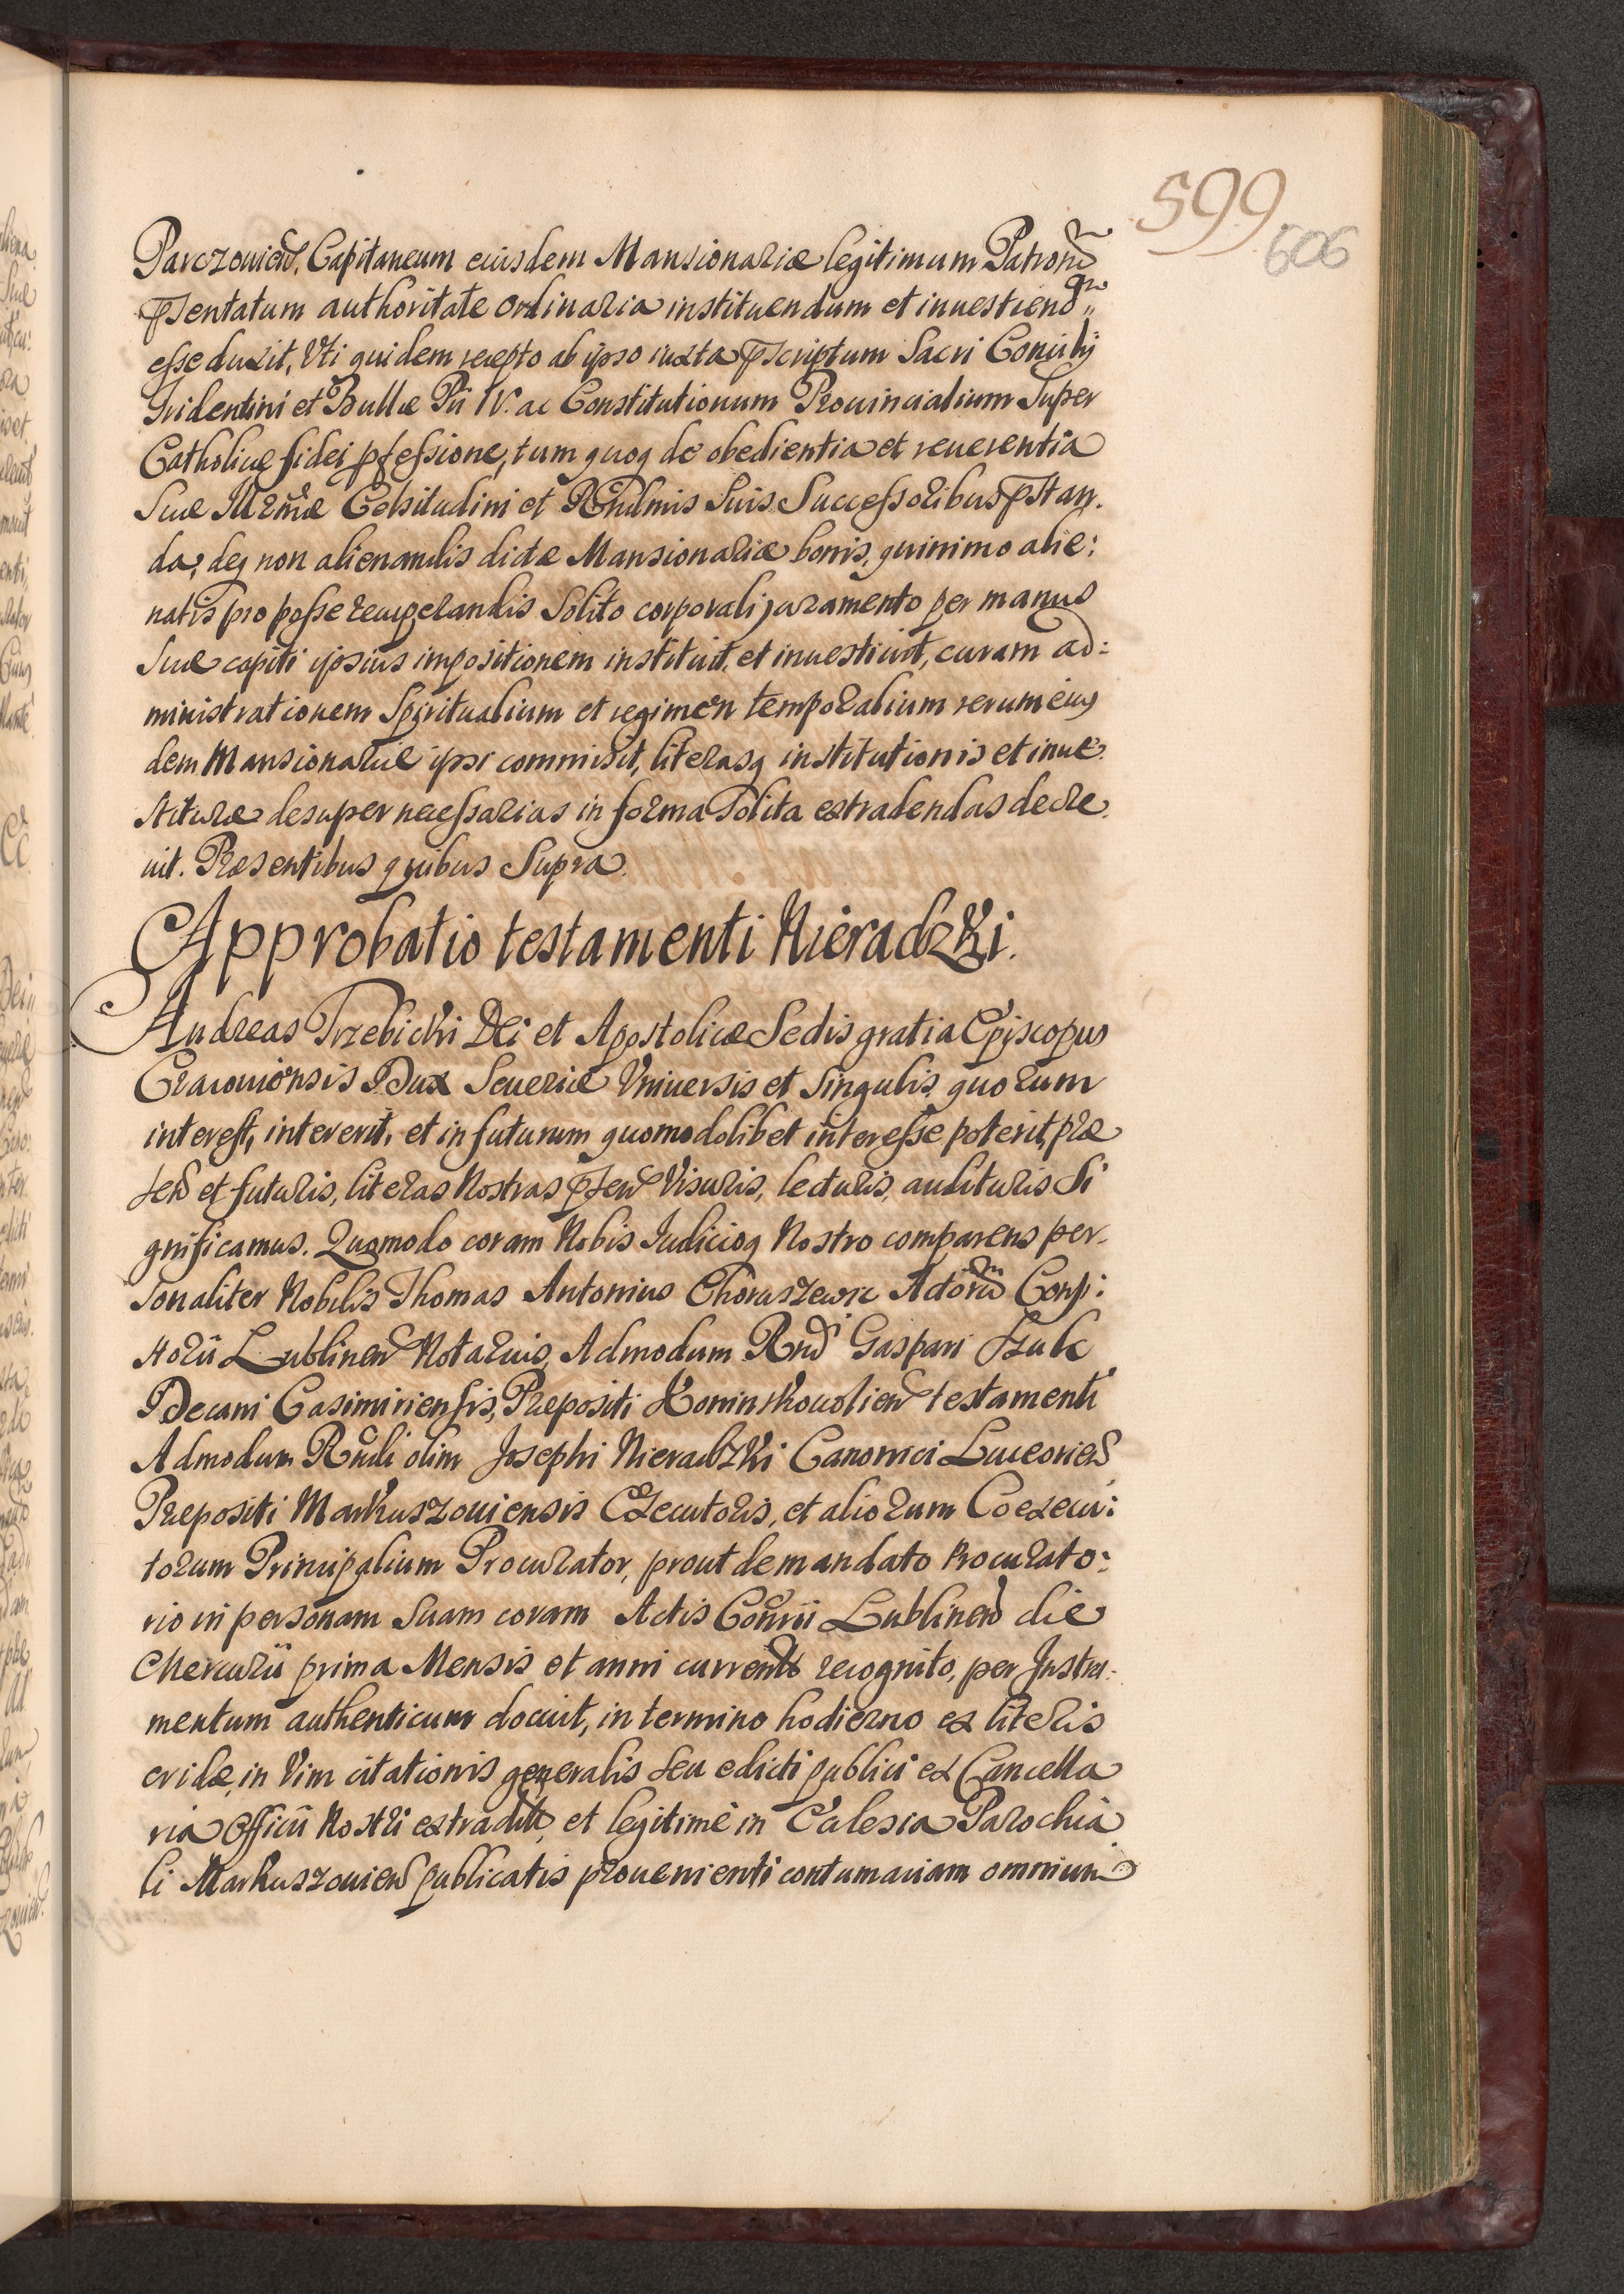 599
606
Parczouien. Capitaneum eiusdem Mansionariæ legitimum Patronū
pſentatum authoritate ordinaria instituendum et inuestiend„
eſse duxit, Vti quidem recepto ab ipso iuxta pscriptum Sacri Concilij
Tridentini et Bullæ Pii IV. ac Constitutionum Prouincialium Super
Catholicæ fidei pfeſsione, tum quoq de obedientia et reuerentia
Suæ Illrmæ Celsitudini et Rndmis Suis Succeſsoribus pstan.
da, deq non alienandis dictæ Mansionariæ bonis, quinimo alie:
natis pro poſse recuperandis Solito corporali juramento per manus
Suæ capiti ipsius impositionem instituit, et inuestiuit, curam ad:
ministrationem Spiritualium et regimen temporalium rerum eius
dem Mansionariæ ipsi commisit, literasq institutionis et inue.
stituræ desuper neceſsarias in forma Solita extradendas decre.
uit. Præsentibus quibus Supra.
Approbatio testamenti Nieradzki.
Andreas Trzebicki Dei et Apostolicæ Sedis gratia Episcopus
Cracouiensis Dux Seueriæ Vniuersis et Singulis, quorum
interest, intererit, et in futurum quomodolibet intereſse poterit, præ
sen et futuris, literas Nostras psen Visuris, lecturis, audituris Si
gnificamus. Quomodo coram Nobis Judicioq Nostro comparens per.
sonaliter Nobilis Thomas Antonius Choraszewic Actorū Consi:
storii Lublinen Notarius, Admodum Rnd Gaspari Szulc
Decani Casimirienſis, Præpositi Koninskowolien testamenti
Admodum Rndi olim Josephi Nieradzki Canonici Luceorien
Præpositi Markuszouiensis Executoris, et aliorum Coexecu:
torum Principalium Procurator, prout de mandato Procurato:
rio in personam Suam coram Actis Consrii Lublinen die
Mercurii prima Mensis et anni currentis recognito, per Jnstru.
mentum authenticum docuit, in termino hodierno ex literis
cridæ, in Vim citationis generalis seu edicti publici ex Cancella
ria Officii Nostri extraditis, et legitimè in Ecclesia Parochia
li Markuszouien publicatis proueni enti contumaciam omnium